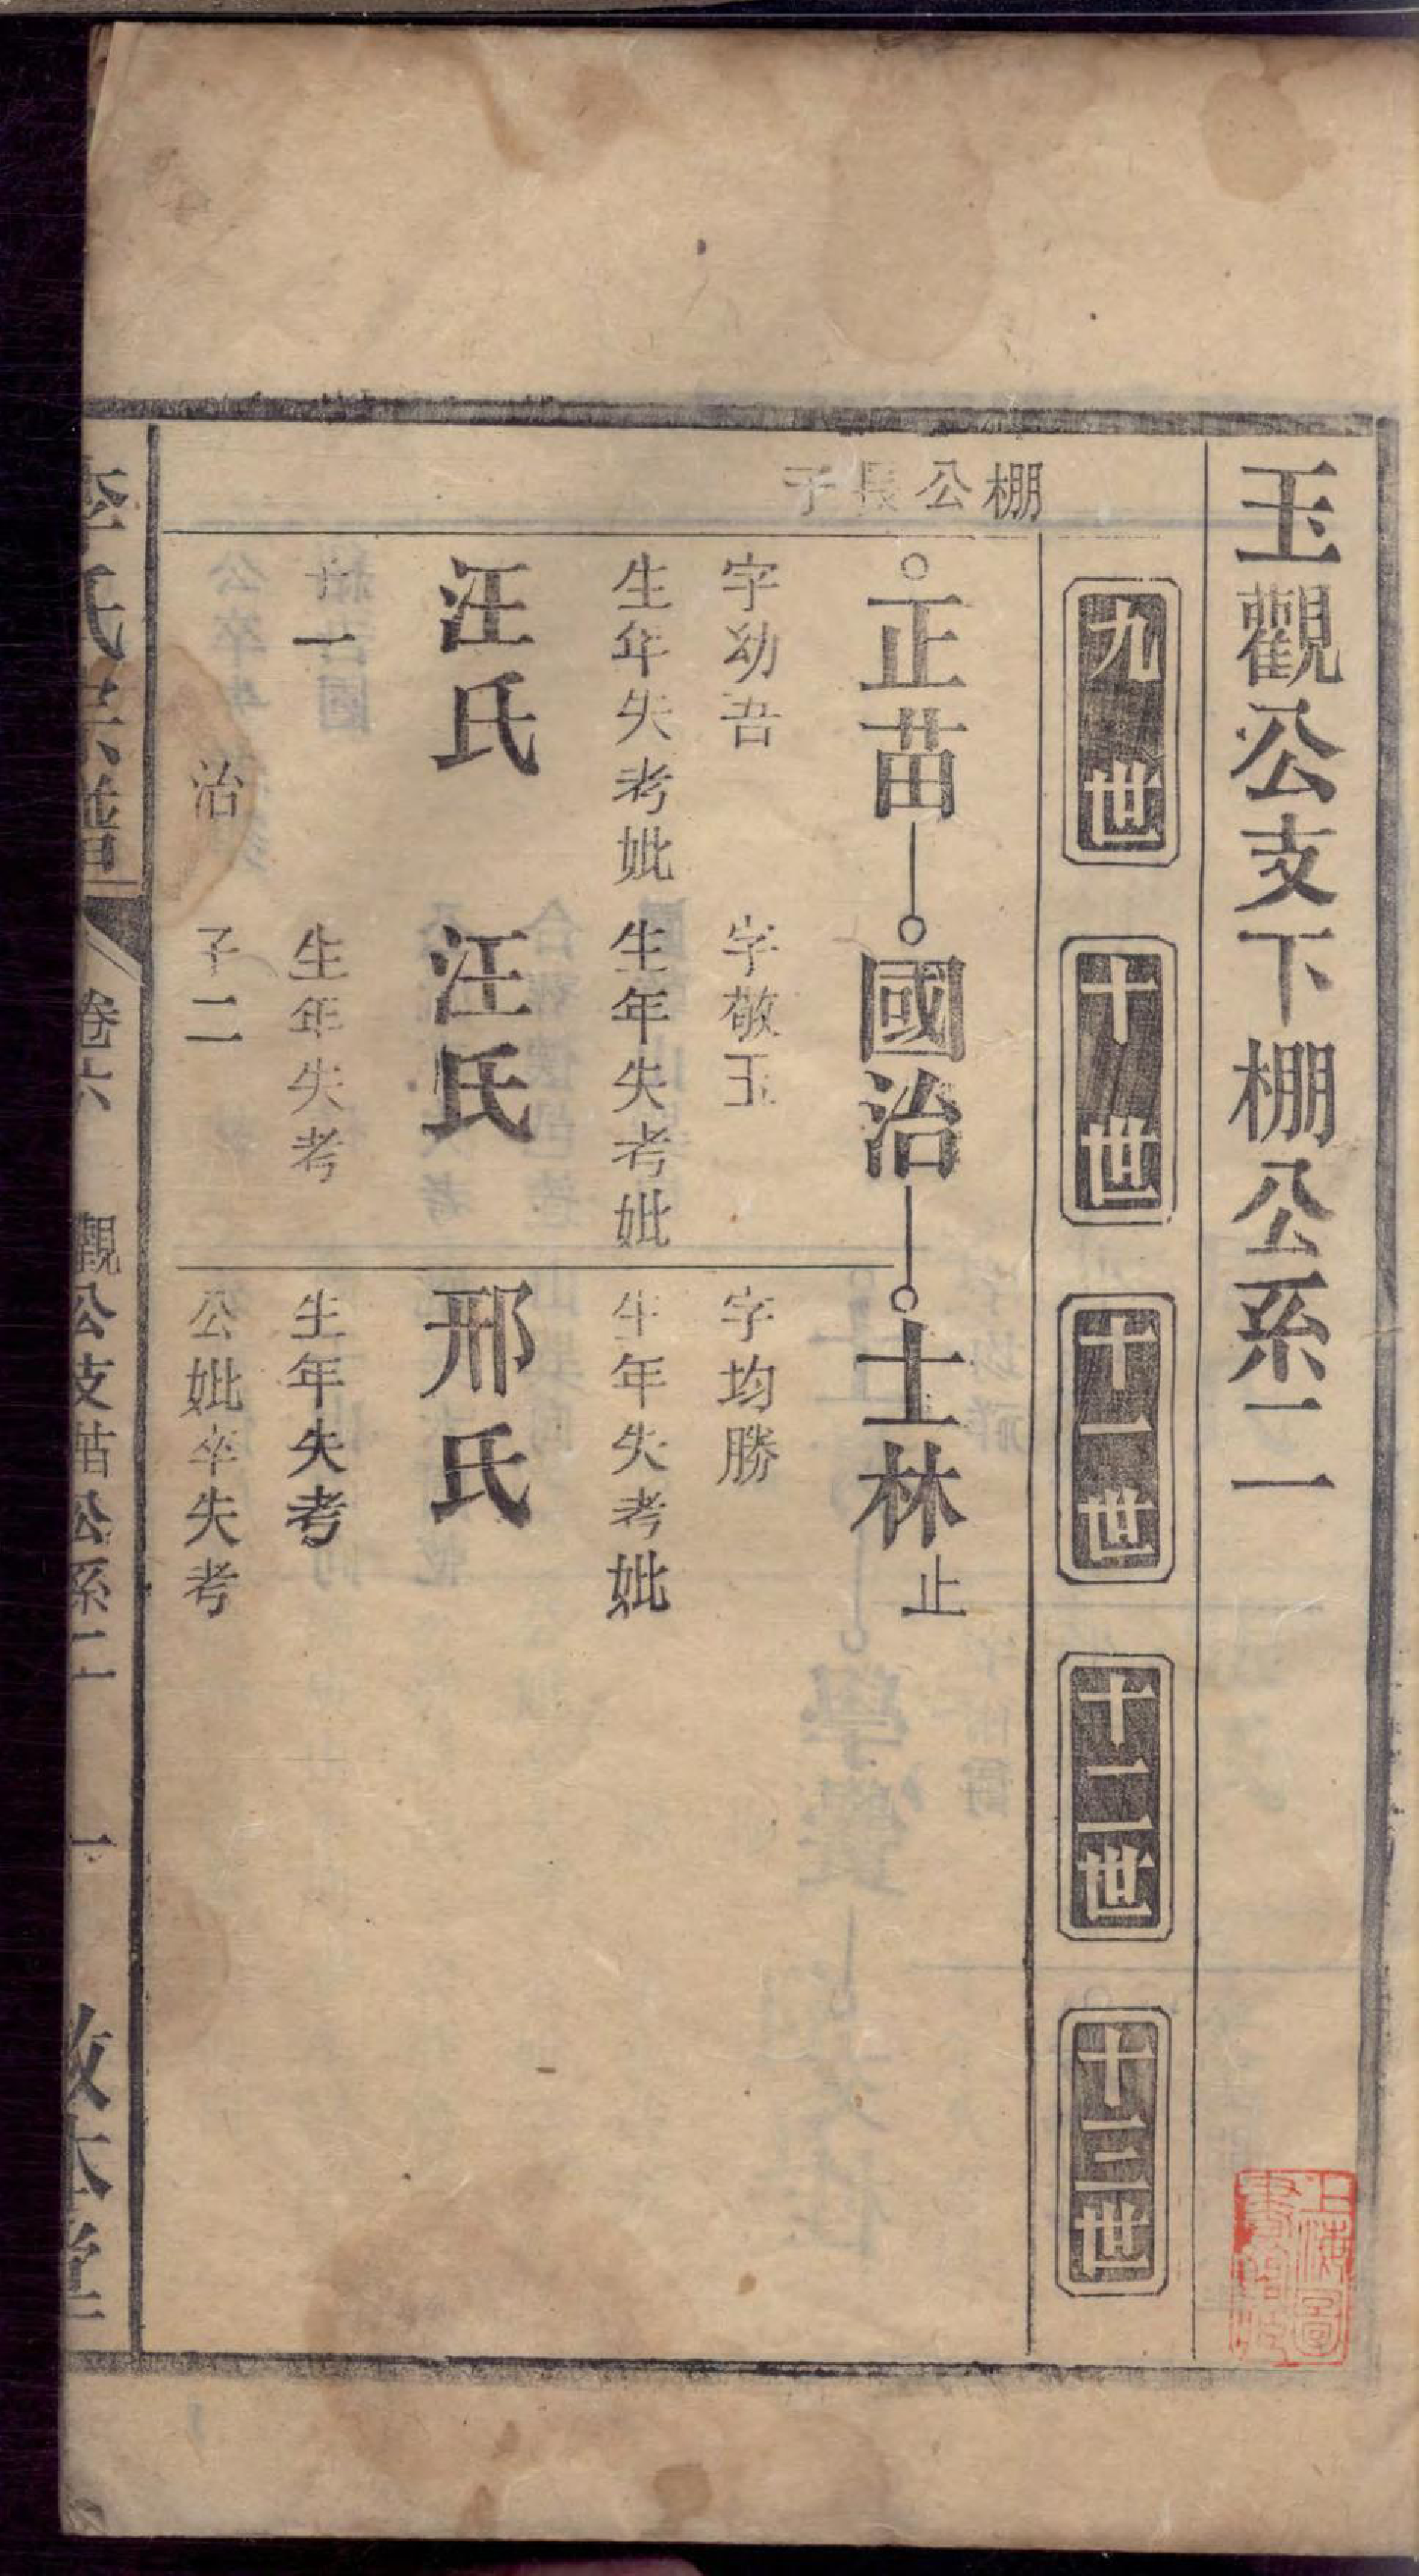 玉觀公支下棚公系二
九世
十世
十一世
十二世
十三世
棚公長子
正苗
國治
士林止
字幼吾
字敬玉
字均勝
生年失考妣
生年失考妣
生年失考妣
汪氏
汪氏
邢氏
子一
生年失考
生年失考
治
子二
公妣卒失考
李氏宗譜
卷六
觀公支苗公系二
一
敦本堂
上海圖書館藏